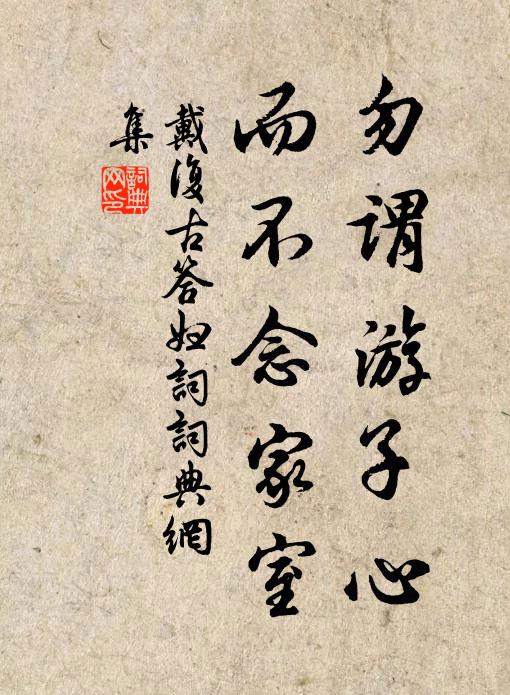 勿謂游子心
而不念家室
戴復古答妇詞詞典網
集
詞典
网印